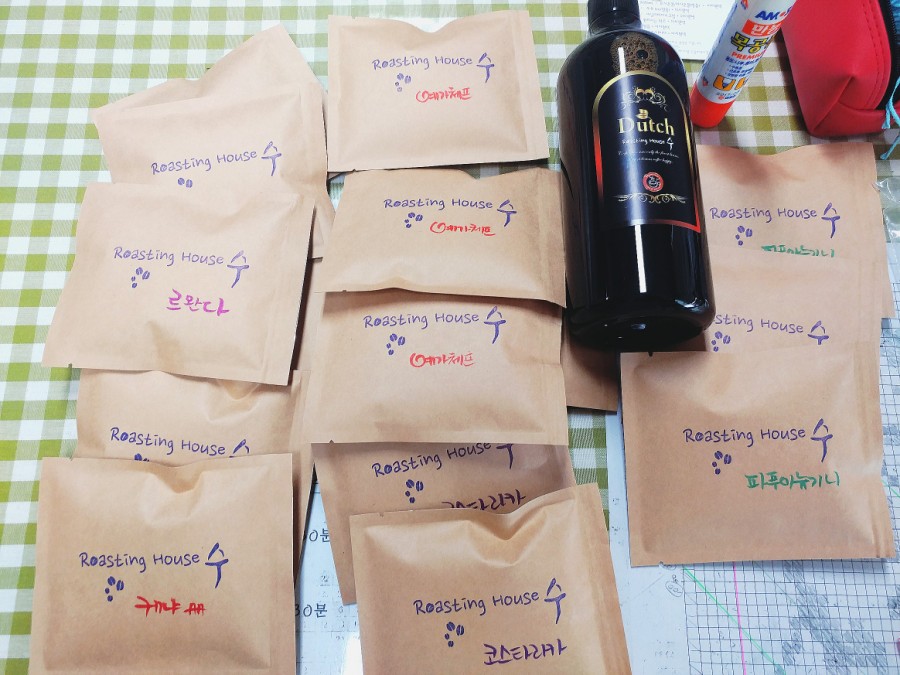 Roasting House 수
Roasting House 수
예가체프
Roasting House 수
르완다
Roasting House 수
예가체프
Roasting House 수
예가체프
Roasting House 수
Roasting House 수
케냐 AA
Roasting House 수
코스타리카
Roasting House 수
코스타리카
Dutch
Roasting House 수
Roasting House 수
파푸아뉴기니
Roasting House 수
Roasting House 수
파푸아뉴기니
AM
목공
PREMIUM
0분
30분